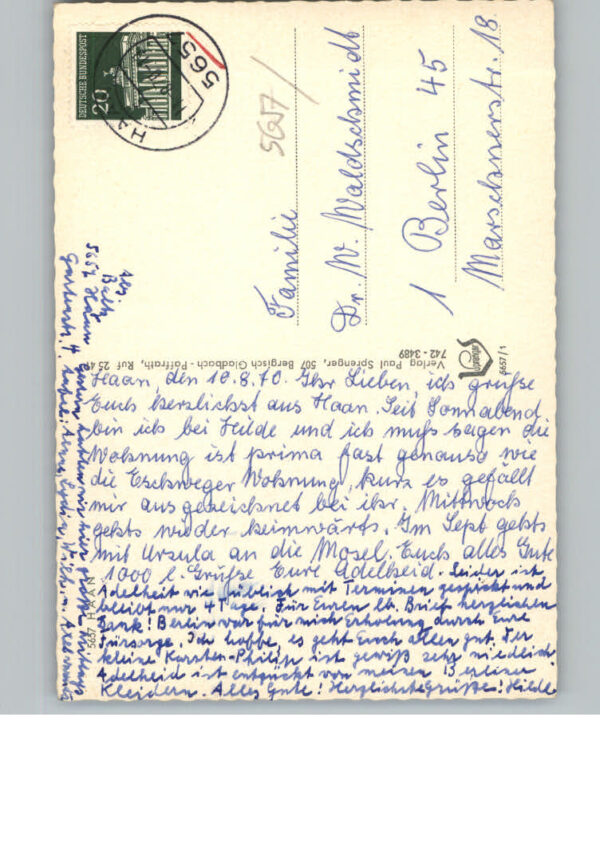 DEUTSCHE BUNDESPOST
20
HAAN
565
5657/
Familie
Dr. W. Waldschmidt
1 Berlin 45
Marschnerstr. 18.
Abs.
5657 Haan
Gartenstr. 4
Verlag Paul Sprenger, 507 Bergisch Gladbach-Paffrath, Ruf 25 4
742 - 3489
5657/1
5657 HAAN
Haan, den 10.8.70. Ihr Lieben, ich grüße
Euch herzlichst aus Haan. Seit Sonnabend
bin ich bei Hilde und ich muß sagen die
Wohnung ist prima fast genauso wie
die Eschweger Wohnung, kurz es gefällt
mir ausgezeichnet bei ihr. Mittwoch
gehts wieder heimwärts. Im Sept. gehts
mit Ursula an die Mosel. Euch alles Gute
1000 l. Grüße Eure Adelheid. Leider ist
Adelheit wie üblich mit Terminen gespickt und
bleibt nur 4 Tage. Für Euren lb. Brief herzlichen
Dank! Berlin war für mich Erholung durch Eure
Fürsorge. Ich hoffe, es geht Euch allen gut. Der
kleine Karsten-Philipp ist gewiß sehr niedlich
Adelheid ist entzückt von meinen Berliner
Kleidern. Alles Gute! Herzlichste Grüße! Hilde
Gestern hatten wir hier